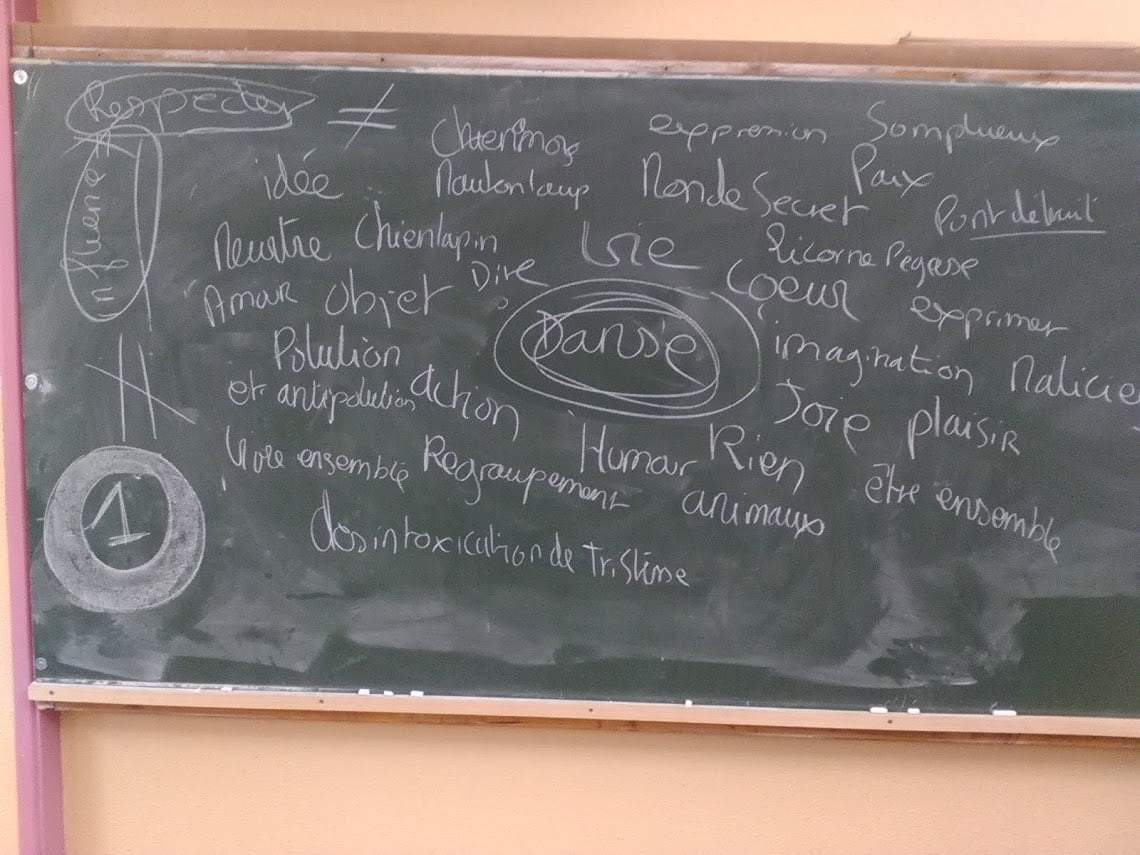 Respecter ≠
expression Somptueux
idée Moutonloup Monde Secret Paix
Pont détruit
Meurtre Chienlapin Vie Licorne Pégase
Amour Objet Dire Coeur exprimer
Danse
Polution imagination
et antipolution action Joie plaisir
Vivre ensemble Regroupement Humour Rien être ensemble
animaux
desintoxication de
1